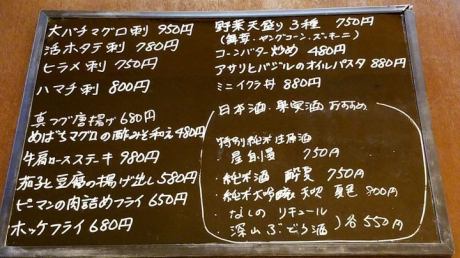 大バチマグロ刺 950円
活ホタテ刺 780円
ヒラメ刺 750円
ハマチ刺 800円
真フグ唐揚げ 680円
めばちマグロの酢みそ和え 480円
牛肩ロースステーキ 980円
茄子と豆腐の揚げ出し 580円
ピーマンの肉詰めフライ 650円
ホッケフライ 680円
野菜天盛り3種 750円
ヤングコーン・ズッキーニ)
コーンバター炒め 480円
アサリとバジルのオイルパスタ 880円
ミニイクラ丼 880円
日本酒・果実酒 おすすめ
特別純米生原酒
750円
・純米酒 750円
・純米大吟醸 天吹 夏色 800円
・なしの リキュール
・深山ぶどう酒 )各550円